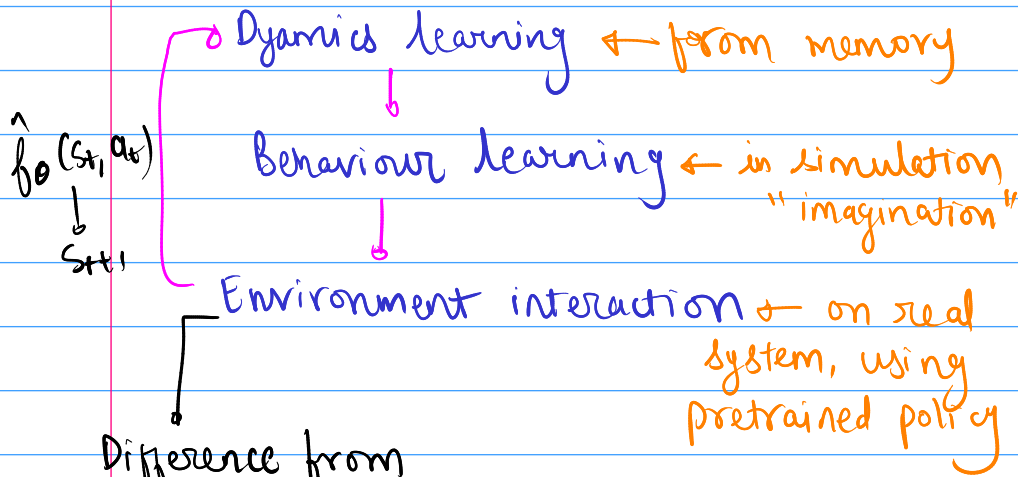 Dyamics learning ← from memory
f̂θ(st, at)
Behaviour learning ← in simulation
"imagination"
st+1
Environment interaction ← on real
system, using
pretrained policy
Difference from